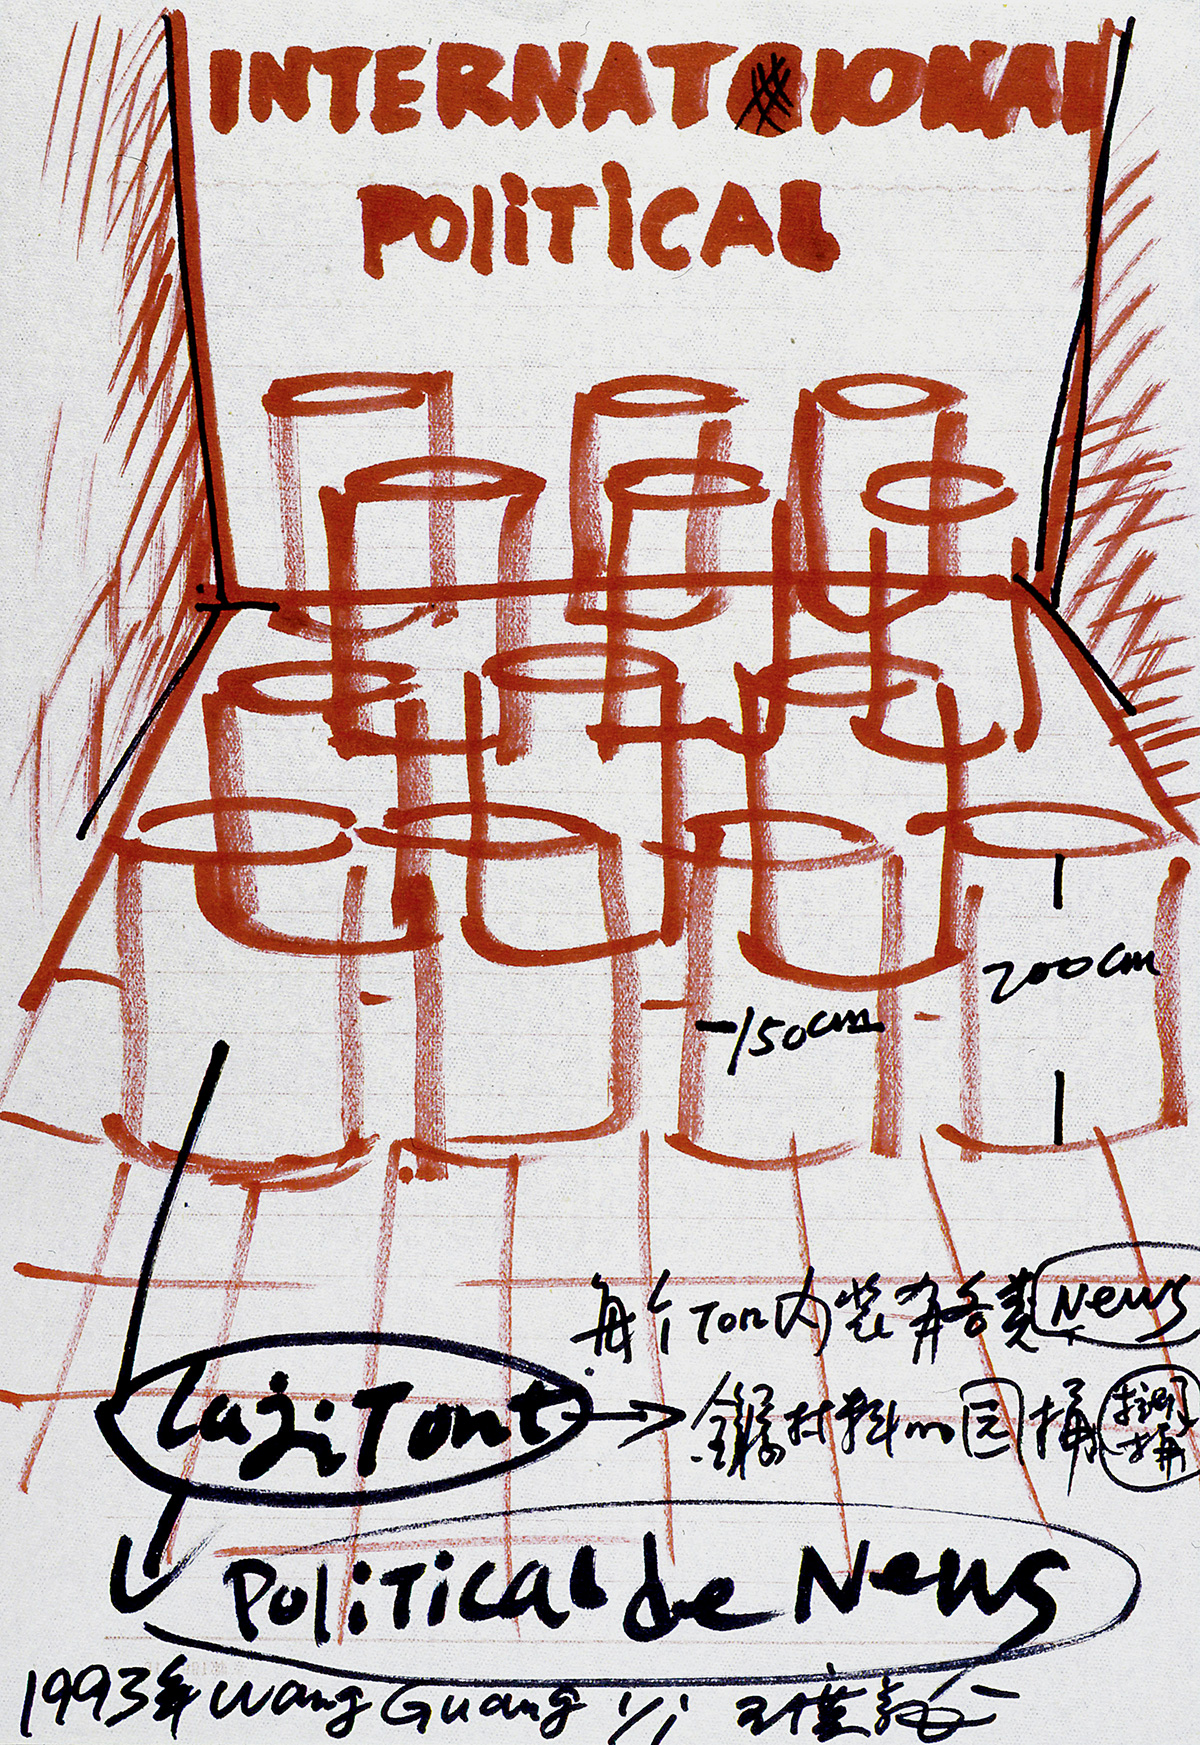 INTERNATIONAL
POLITICAL
200cm
150cm
每个Ton内装有各类News
LajiTont → 金属材料的园桶
Political de News
1993年 Wang Guang Yi 王广义